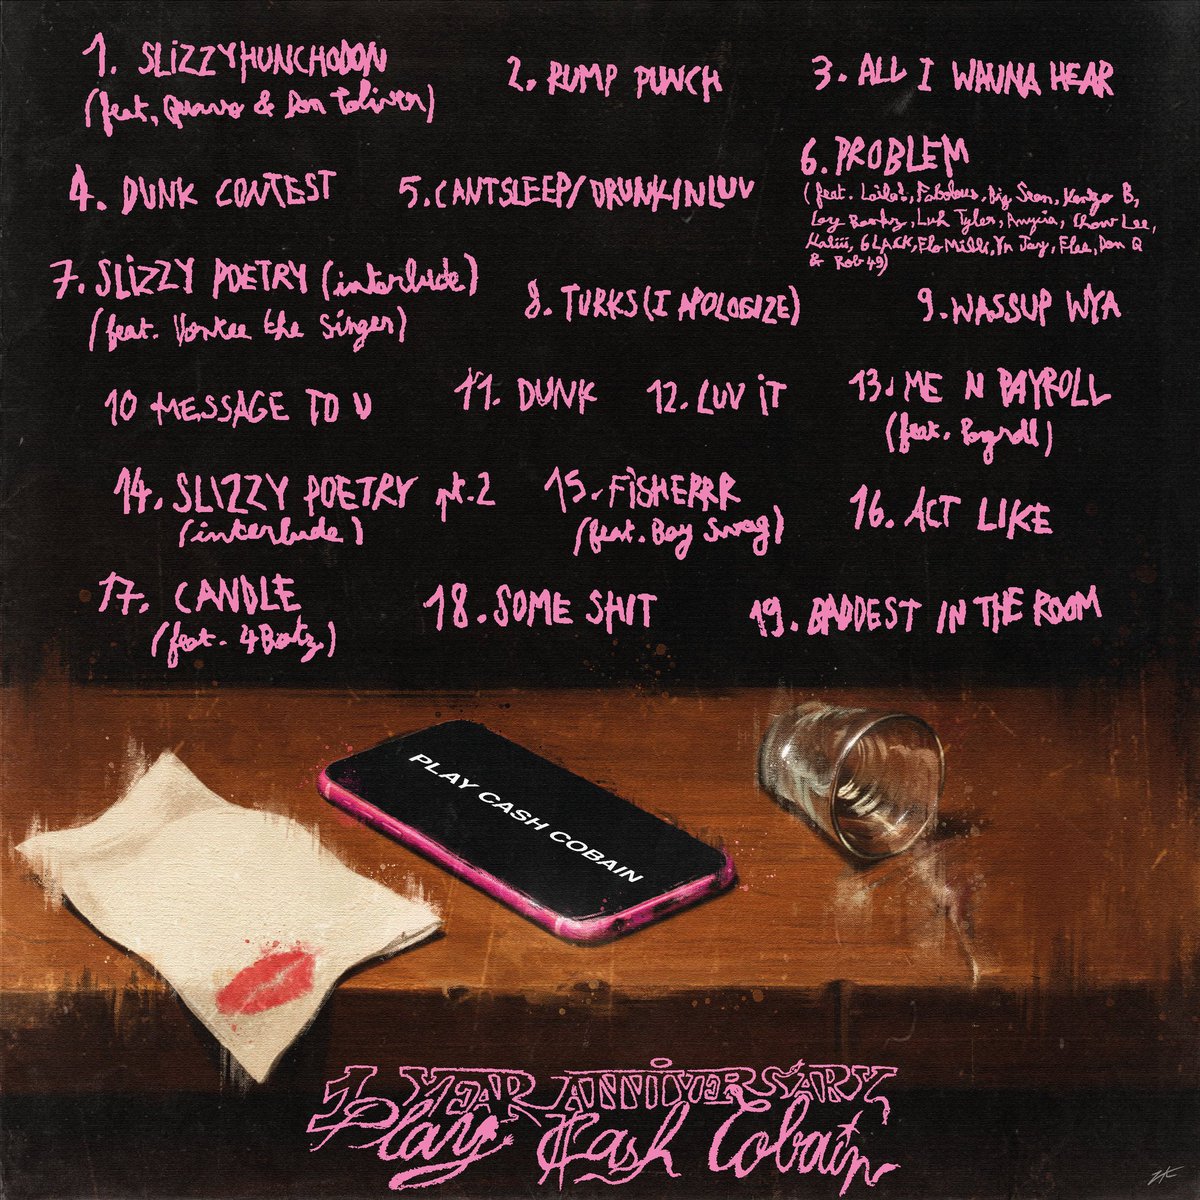 1. SLIZZYHUNCHODON
(feat. Quavo & Don Toliver)
2. RUMP PUNCH
3. ALL I WANNA HEAR
4. DUNK CONTEST
5. CANTSLEEP/DRUNKINLUV
6. PROBLEM
(feat. Laila!, Fabolous, Big Sean, Kenzo B,
Lay Bankz, Luh Tyler, Anycia, Chow Lee,
Kaliii, 6LACK, Flo Milli, YN Jay, Flee, Don Q
& Rob49)
7. SLIZZY POETRY (interlude)
(feat. Vontee the Singer)
8. TURKS (I APOLOGIZE)
9. WASSUP WYA
10 MESSAGE TO U
11. DUNK
12. LUV IT
13. ME N PAYROLL
(feat. Payroll)
14. SLIZZY POETRY pt. 2
(interlude)
15. FISHERRR
(feat. Bay Swag)
16. ACT LIKE
17. CANDLE
(feat. 4Batz)
18. SOME SHIT
19. BADDEST IN THE ROOM
PLAY CASH COBAIN
1 YEAR ANNIVERSARY
Play $Cash Cobain